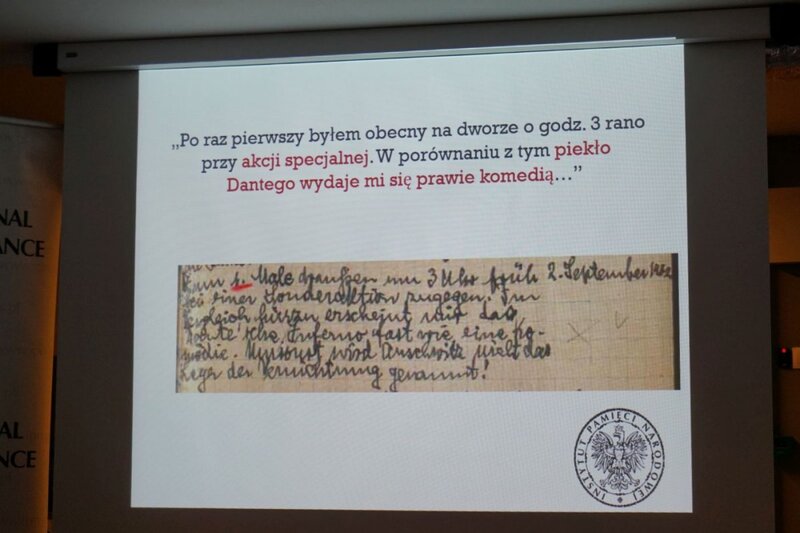 „Po raz pierwszy byłem obecny na dworze o godz. 3 rano
przy akcji specjalnej. W porównaniu z tym piekło
Dantego wydaje mi się prawie komedią…”
NAL
ANCE
zum 1. Male draußen um 3 Uhr früh 2. September 1942
bei einer Sonderaktion zugegen. Im
Vergleich hierzu erscheint mir das
Inferno fast wie eine Ko-
mödie. Umsonst wird Auschwitz nicht das
Lager der Vernichtung genannt!
NAL
ANCE
INSTYTUT PAMIĘCI NARODOWEJ